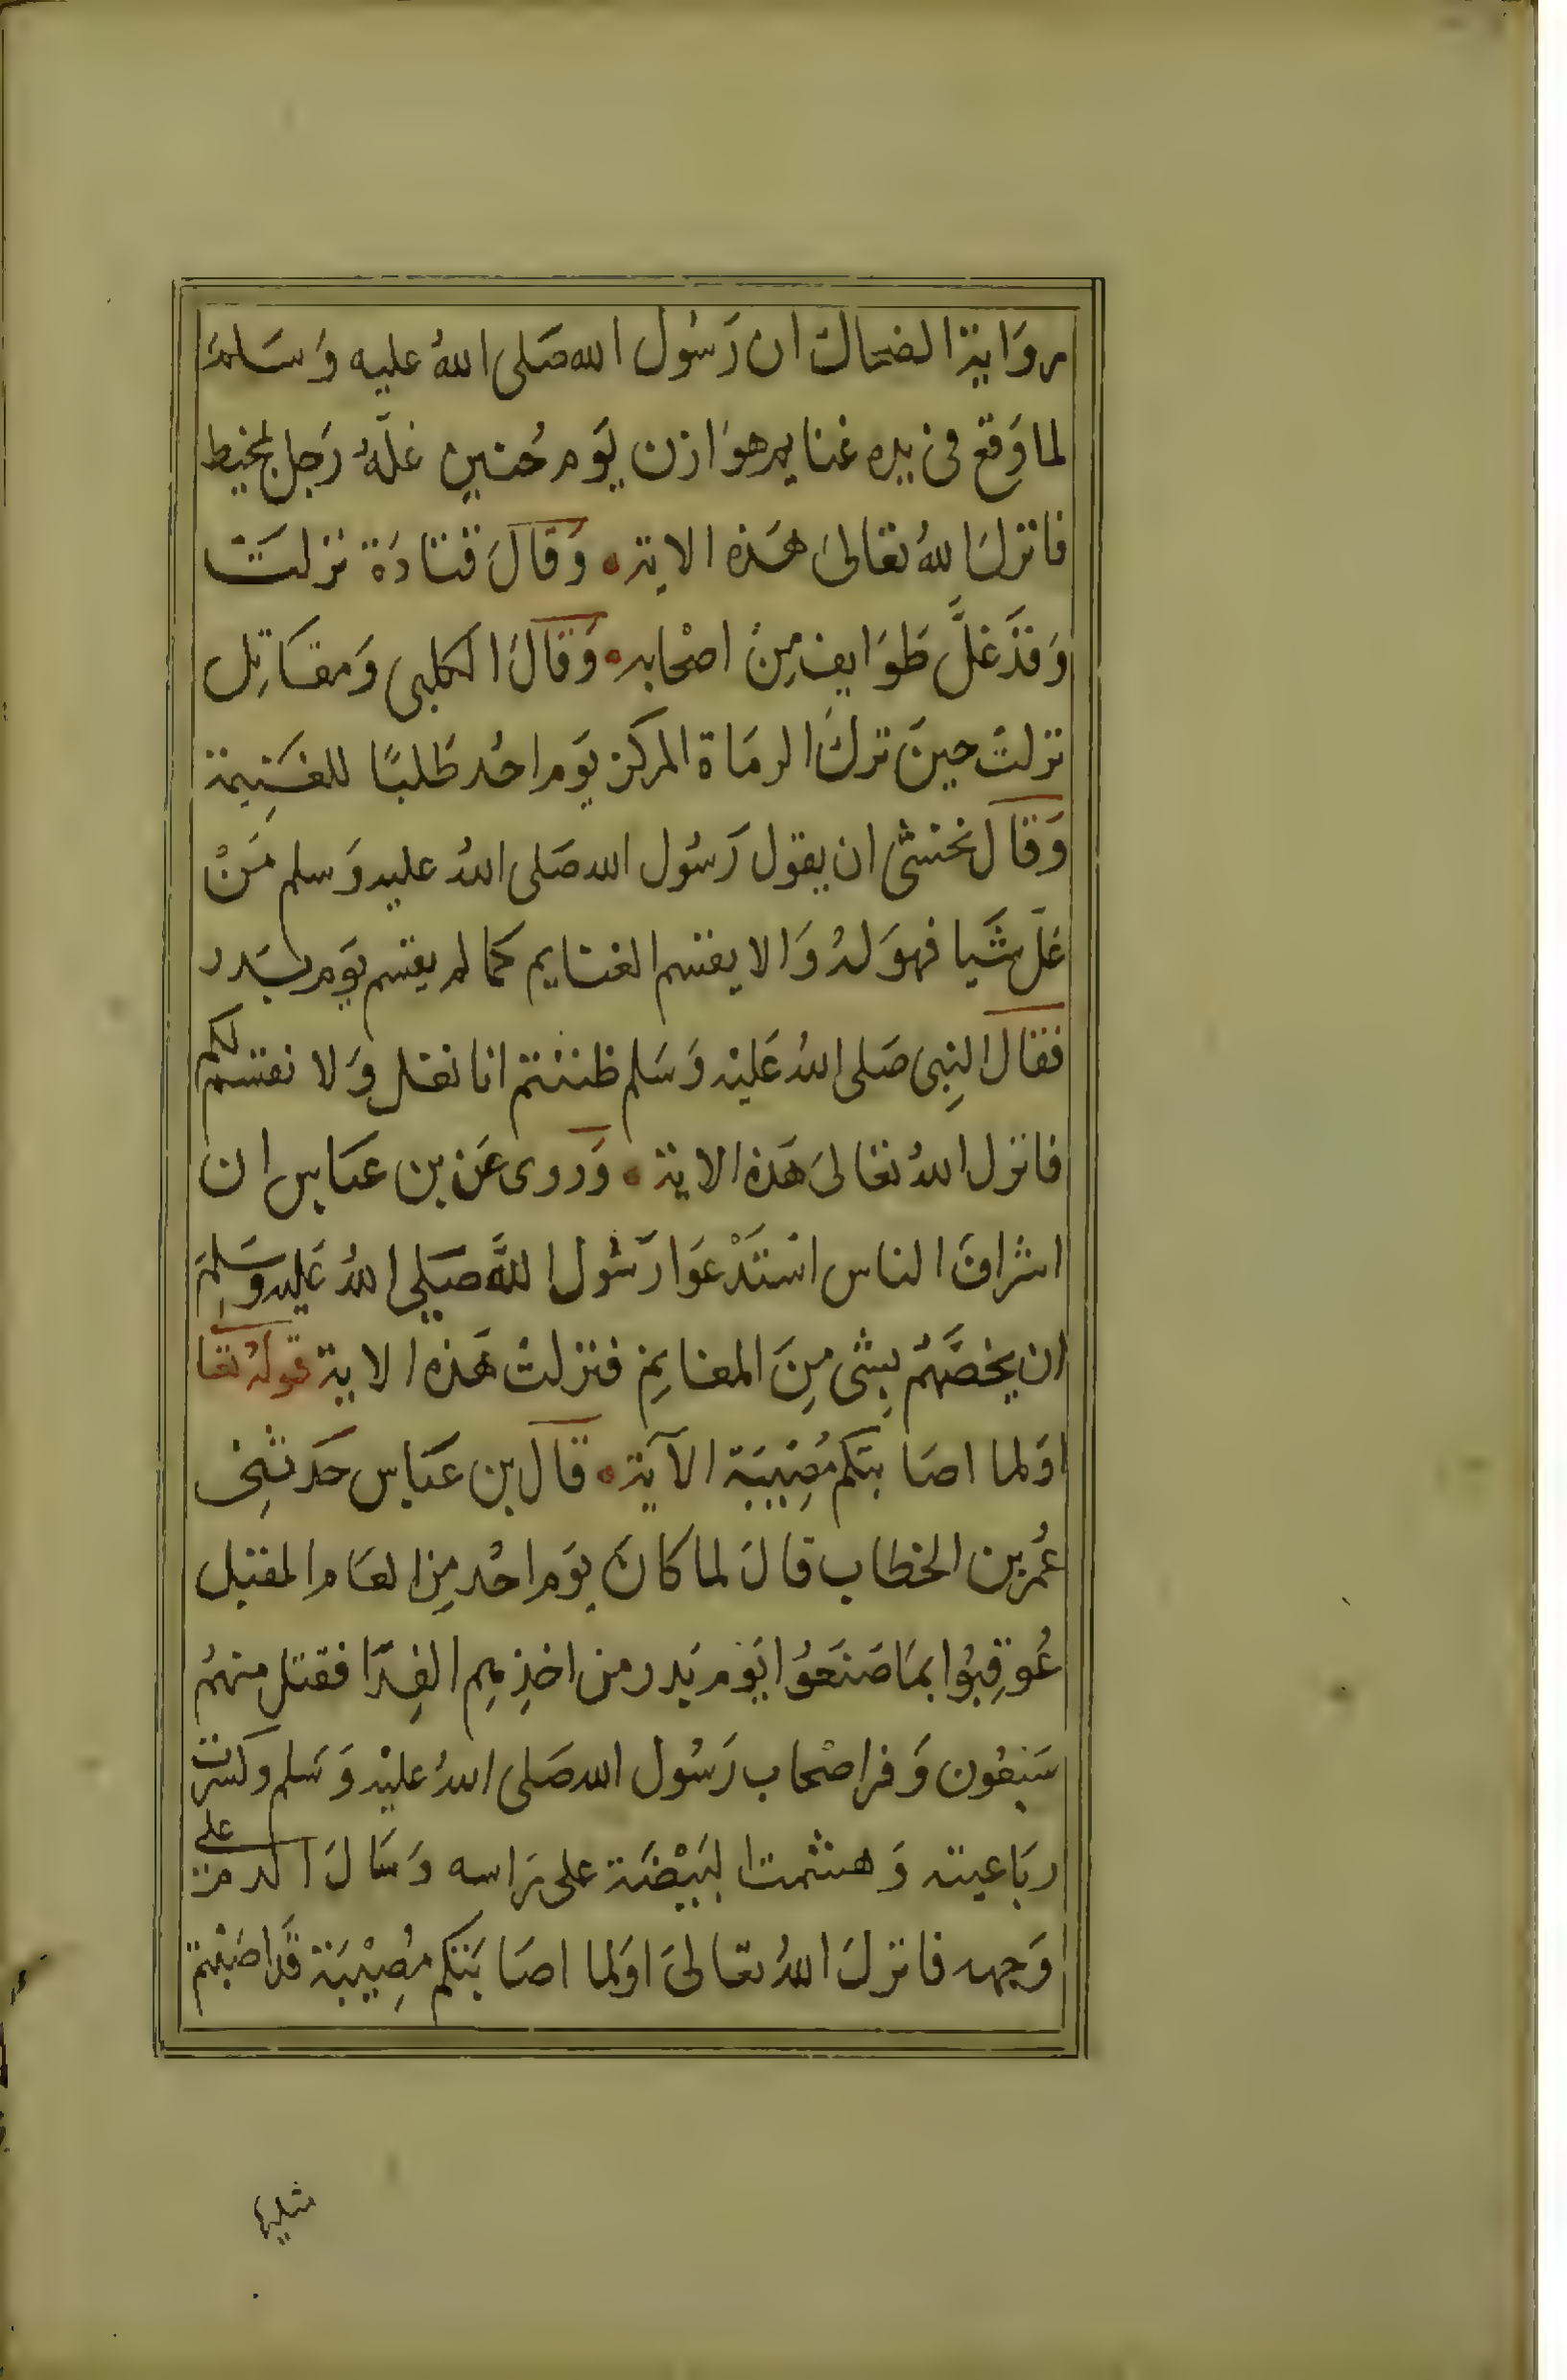 روَاية الضحاك ان رَسُول الله صَلى اللهُ عليه وَسَلمَ
لما وَقع فى يده غنايم هوَازن يَوم حُنين غلَّهُ رَجل بمخيط
فانزلَ اللهُ تعالىَ هَذه الاية ٥ وَقالَ قتادَة نزلتَ
وَقدَ غلَّ طوَايف مِنْ اصْحابه ٥ وَقالَ الكلبى وَمقاتِل
نزلتَ حينَ تركَ الرمَاة المركز يَوم احُد طَلبًا للغَنِيمة
وَقالَ نخشى ان يقول رَسُول الله صَلى اللهُ عليه وَسلم مَنْ
غلَ شَيا فهوَ لهُ وَالا يقسم الغنايم كما لم يقسم يَوم بَدر
فقالَ النِبى صَلى اللهُ عَليْه وَسَلم ظننتم انا نغل وَلا نقسم لكم
فانزل اللهُ تعَالىَ هَذه الاية ٥ وَروى عَن بن عبَاس ان
اشرافَ الناس اسْتَدْعَوا رَسُول اللَّه صَلي اللهُ عَليه وَسَلمَ
ان يخصَّهُم بِشى مِنَ المغانِم فنزلتْ هَذه الاية قولهُ تعا
اوَلما اصَابتكم مُصِيبَة الآية ٥ قالَ بن عبَاس حَدثنِى
عُمر بن الخطاب قالَ لما كانَ يَوم احُد مِنَ العَام المقبل
عُوقِبُوا بمَا صَنَعُوا يَوم بَدر من اخذِهِم الفِدَا فقتل منهمُ
سَبعُون وَفر اصْحاب رَسُول الله صَلى اللهُ عليْه وَسَلم وكسرت
ربَاعيته وَهشمت البَيْضَة على رَاسه وَسَالَ الدم على
وَجهه فانزلَ اللهُ تعالىَ اوَلما اصَابَتكم مُصِيْبَة قَد اصَبْتم
مثليها